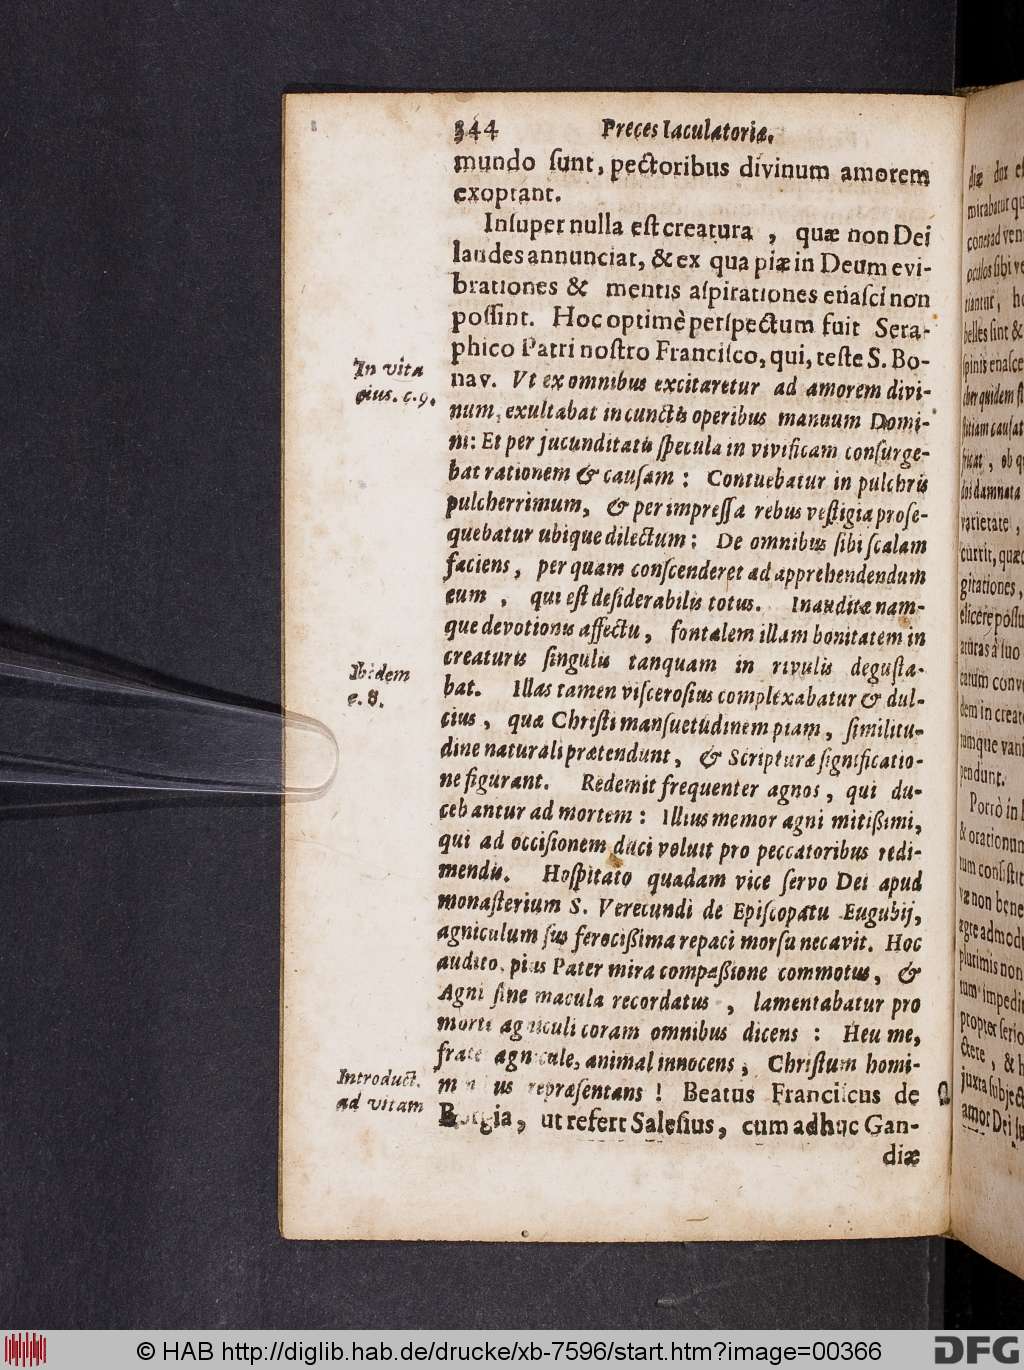 344 Preces Iaculatoriæ.
mundo ſunt, pectoribus divinum amorem
exoptant.
Inſuper nulla eſt creatura , quæ non Dei
laudes annunciat, & ex qua piæ in Deum evi-
brationes & mentis aſpirationes enaſci non
poſſint. Hoc optimè perſpectum fuit Sera-
phico Patri noſtro Franciſco, qui, teſte S. Bo-
In vita
eius. c. 9.
nav. Vt ex omnibus excitaretur ad amorem divi-
num, exultabat in cunctis operibus manuum Domi-
ni: Et per jucunditatis ſpecula in vivificam conſurge-
bat rationem & cauſam : Contuebatur in pulchris
pulcherrimum, & per impreſſa rebus veſtigia proſe-
quebatur ubique dilectum: De omnibus ſibi ſcalam
faciens, per quam conſcenderet ad apprehendendum
eum , qui eſt deſiderabilis totus. Inauditæ nam-
que devotionis affectu, fontalem illam bonitatem in
creaturis ſingulis tanquam in rivulis deguſta-
Ibidem
c. 8.
bat. Illas tamen viſceroſius complexabatur & dul-
cius, quæ Chriſti manſuetudinem piam, ſimilitu-
dine naturali prætendunt, & Scripturæ ſignificatio-
ne figurant. Redemit frequenter agnos, qui du-
cebantur ad mortem : Illius memor agni mitißimi,
qui ad occiſionem duci voluit pro peccatoribus redi-
mendis. Hoſpitato quadam vice ſervo Dei apud
monaſterium S. Verecundi de Epiſcopatu Eugubij,
agniculum ſus ferocißima repaci morſu necavit. Hoc
audito, pius Pater mira compaßione commotus, &
Agni ſine macula recordatus , lamentabatur pro
morte agniculi coram omnibus dicens : Heu me,
frater agnicule, animal innocens, Chriſtum homi-
Introduct.
ad vitam
nibus repræſentans ! Beatus Franciſcus de
Borgia, ut refert Saleſius, cum adhuc Gan-
diæ
© HAB http://diglib.hab.de/drucke/xb-7596/start.htm?image=00366
DFG